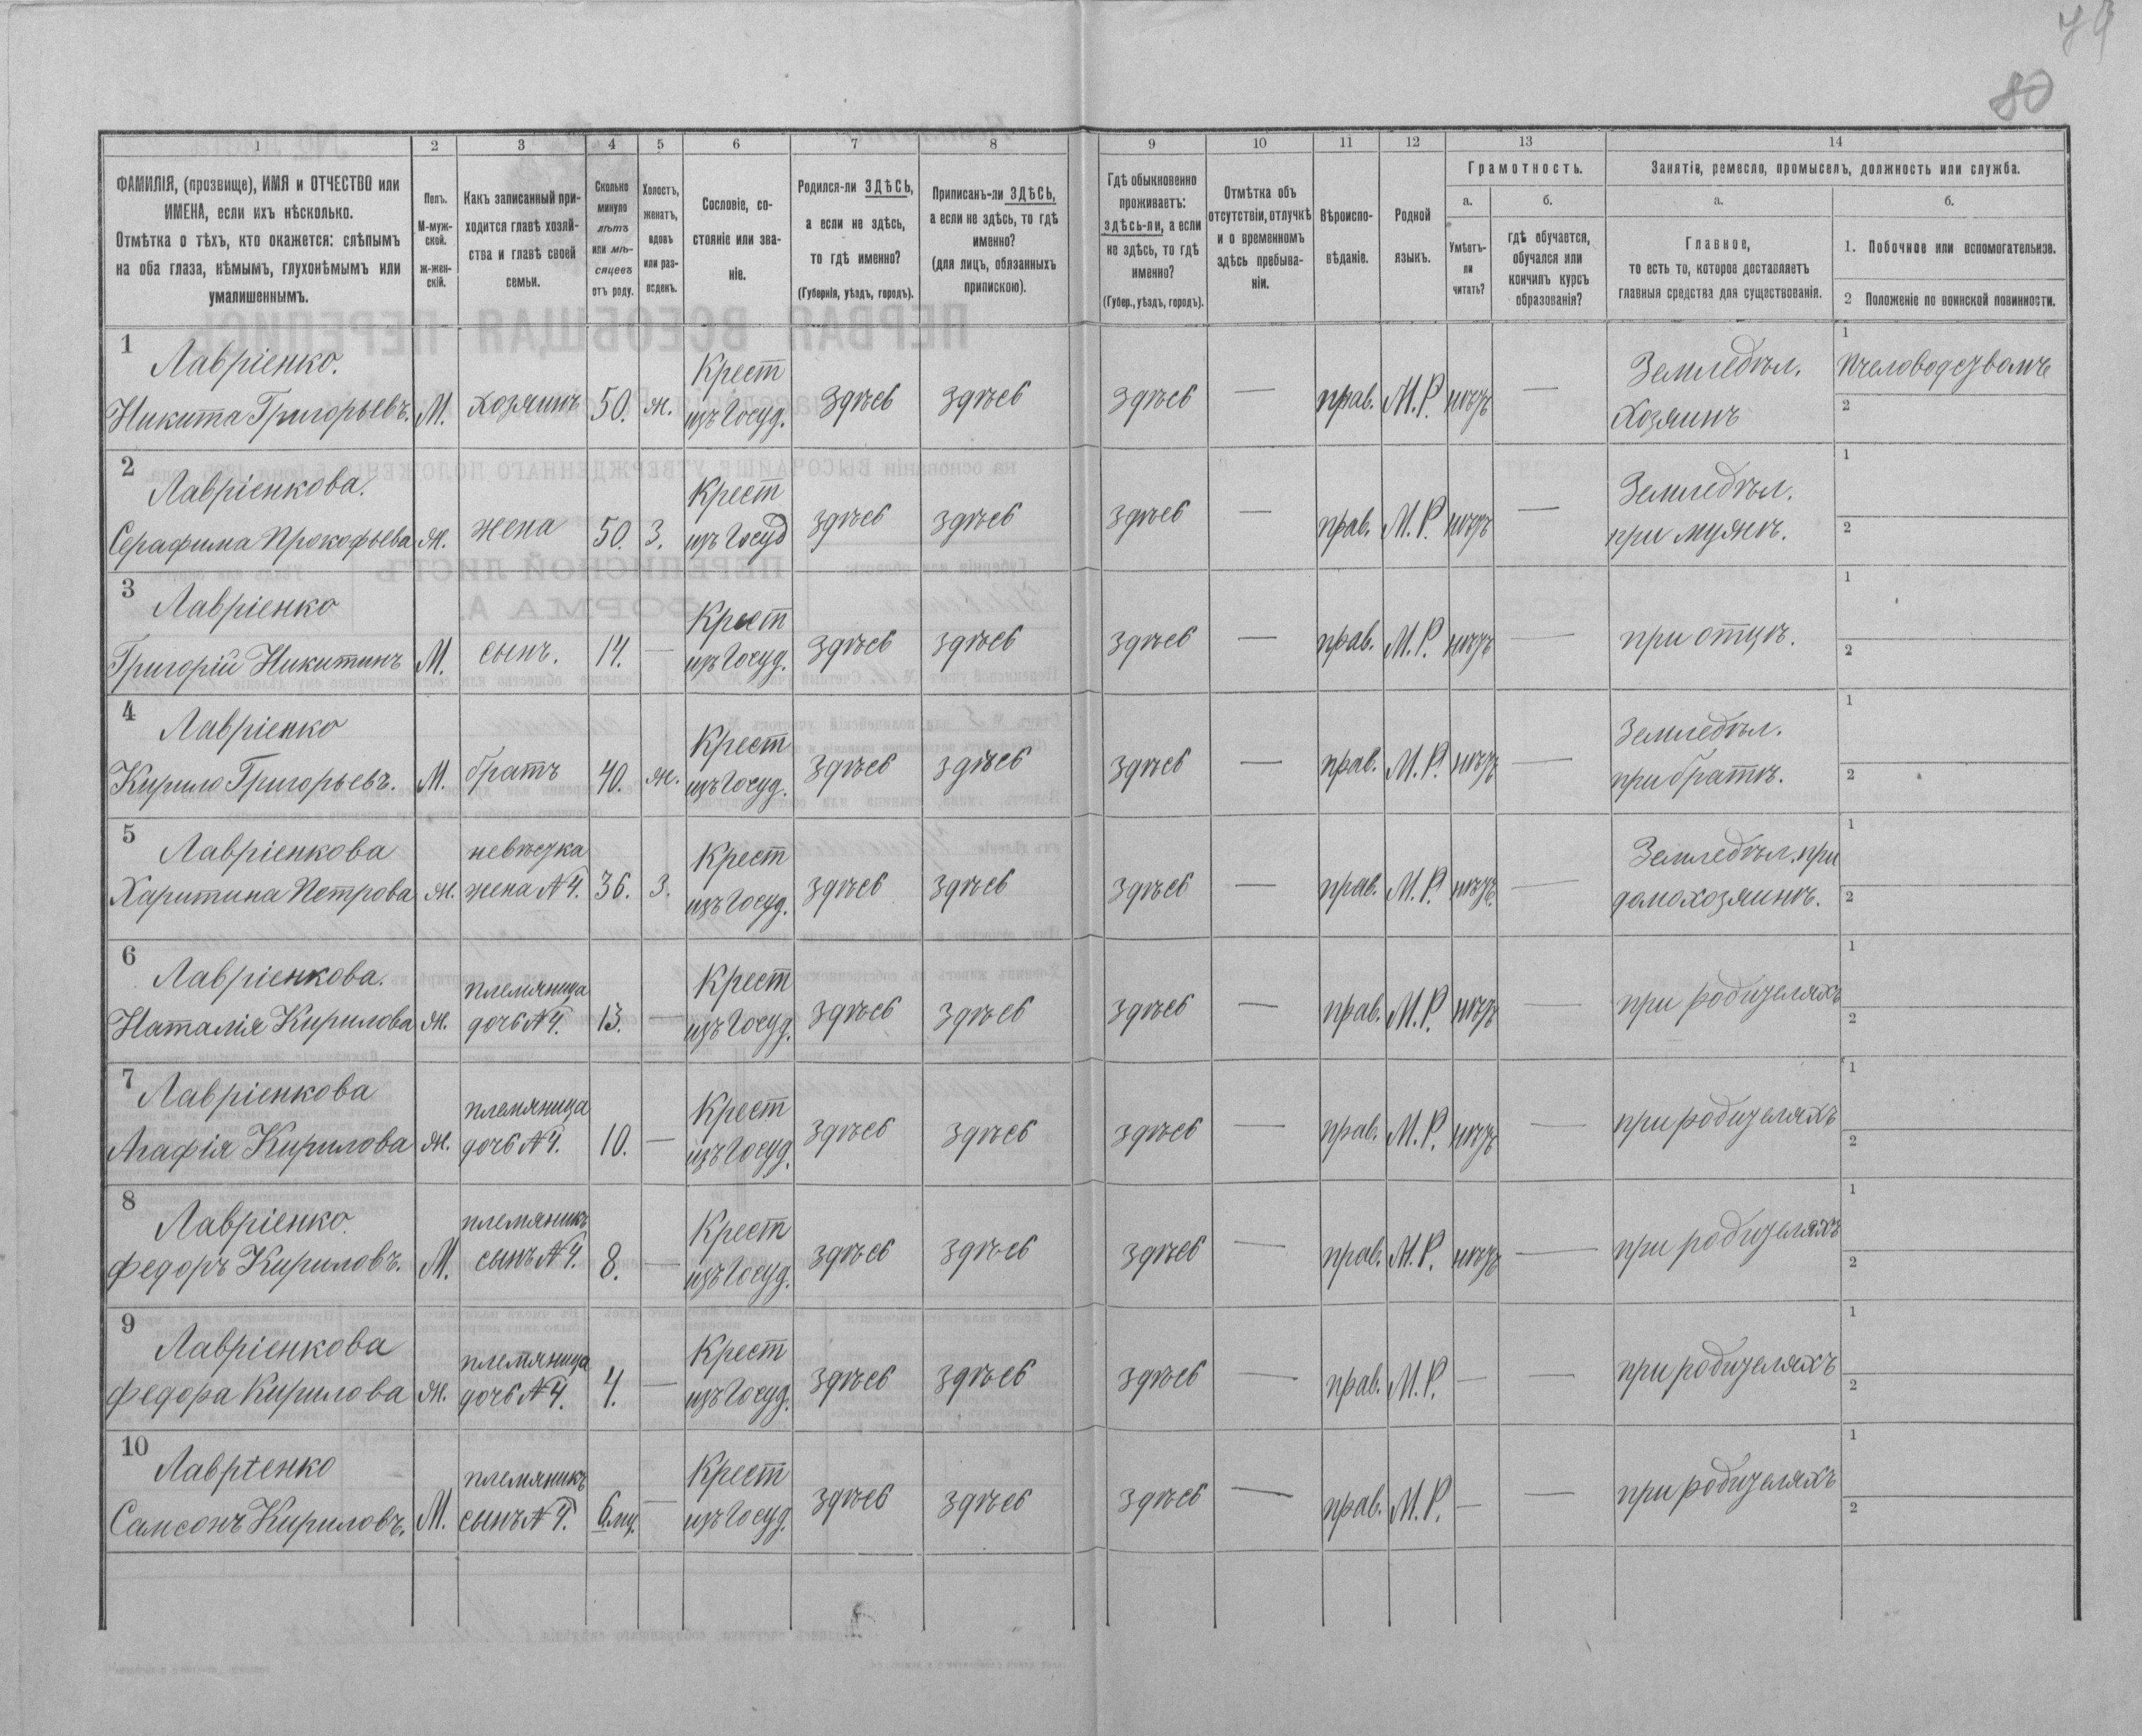 79
80
1 2 3 4 5 6 7 8 9 10 11 12 13 14
ФАМИЛІЯ, (прозвище), ИМЯ и ОТЧЕСТВО или
ИМЕНА, если ихъ нѣсколько.
Отмѣтка о тѣхъ, кто окажется: слѣпымъ
на оба глаза, нѣмымъ, глухонѣмымъ или
умалишеннымъ.
Полъ.
М-муж-
ской.
ж-жен-
скій.
Какъ записанный при-
ходится главѣ хозяй-
ства и главѣ своей
семьи.
Сколько
минуло
лѣтъ
или мѣ-
сяцевъ
отъ роду.
Холостъ,
женатъ,
вдовъ
или раз-
веденъ.
Сословіе, со-
стояніе или зва-
ніе.
Родился-ли ЗДѢСЬ,
а если не здѣсь,
то гдѣ именно?
(Губернія, уѣздъ, городъ).
Приписанъ-ли ЗДѢСЬ,
а если не здѣсь, то гдѣ
именно?
(для лицъ, обязанныхъ
припискою).
Гдѣ обыкновенно
проживаетъ:
здѣсь-ли, а если
не здѣсь, то гдѣ
именно?
(Губер., уѣздъ, городъ).
Отмѣтка объ
отсутствіи, отлучкѣ
и о временномъ
здѣсь пребыва-
ніи.
Вѣроиспо-
вѣданіе.
Родной
языкъ.
Грамотность.
а.
Умѣетъ-
ли
читать?
б.
гдѣ обучается,
обучался или
кончилъ курсъ
образованія?
Занятіе, ремесло, промыселъ, должность или служба.
а.
Главное,
то есть то, которое доставляетъ
главныя средства для существованія.
б.
1. Побочное или вспомогательное.
2 Положеніе по воинской повинности.
1 Лавріенко. Крест Земледѣл. 1 пчеловодствомъ
Никита Григорьевъ. М. хозяинъ 50. ж. изъ Госуд. здѣсь здѣсь здѣсь — прав. М.Р. нѣтъ — Хозяинъ 2
2 Лавріенкова. Крест Земледѣл. 1
Серафима Прокофьева ж. жена 50. З. изъ Госуд здѣсь здѣсь здѣсь — прав. М.Р. нѣтъ — при мужѣ. 2
3 Лавріенко Крест 1
Григорій Никитинъ М. сынъ. 14. — изъ Госуд. здѣсь здѣсь здѣсь — прав. М.Р. нѣтъ — при отцѣ. 2
4 Лавріенко Крест Земледѣл. 1
Кирило Григорьевъ. М. братъ 40. ж. изъ Госуд. здѣсь здѣсь здѣсь — прав. М.Р. нѣтъ — при братѣ. 2
5 Лавріенкова невѣстка Крест Земледѣл. при 1
Харитина Петрова ж. жена №4. 36. З. изъ Госуд. здѣсь здѣсь здѣсь — прав. М.Р. нѣтъ. — домохозяинѣ. 2
6 Лавріенкова. племяница Крест 1
Наталія Кирилова ж. дочь №4. 13. — изъ Госуд. здѣсь здѣсь здѣсь — прав. М.Р. нѣтъ — при родителяхъ 2
7 Лавріенкова племяница Крест 1
Агафія Кирилова ж. дочь №4. 10. — изъ Госуд. здѣсь здѣсь здѣсь — прав. М.Р. нѣтъ — при родителяхъ 2
8 Лавріенко. племяникъ Крест 1
Федоръ Кириловъ. М. сынъ №4. 8. — изъ Госуд. здѣсь здѣсь здѣсь — прав. М.Р. нѣтъ — при родителяхъ 2
9 Лавріенкова племяница Крест 1
Федора Кирилова ж. дочь №4. 4. — изъ Госуд. здѣсь здѣсь здѣсь — прав. М.Р. — — при родителяхъ 2
10 Лавріенко племяникъ Крест 1
Самсонъ Кириловъ. М. сынъ №4. 6 мц. — изъ Госуд. здѣсь здѣсь здѣсь — прав. М.Р. — — при родителяхъ 2